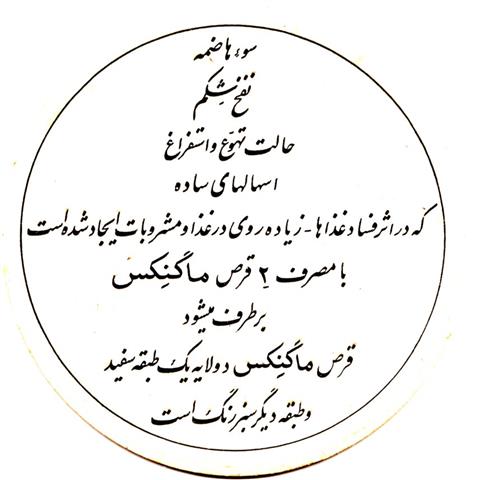 سوء هاضمه
نفخ شکم
حالت تهوع و استفراغ
اسهالهای ساده
که در اثر فساد غذاها - زیاده روی در غذا و مشروبات ایجاد شده است
با مصرف ۲ قرص ماگنکس
برطرف میشود
قرص ماگنکس دولایه یک طبقه سفید
و طبقه دیگر سبز رنگ است